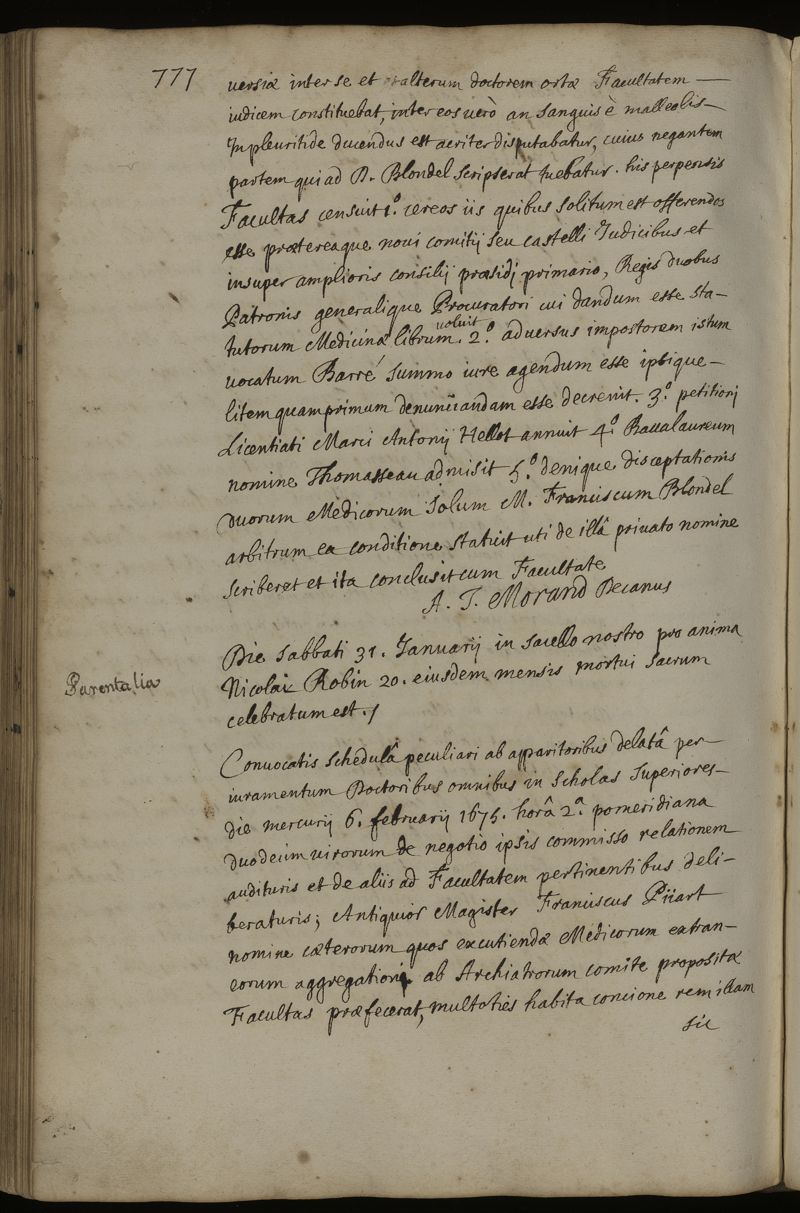 777
uersiæ inter se et alterum doctorem ortæ Facultatem —
iudicem constituebat, inter eos uerò an sanguis è malleolis —
In pleuritide ducendus est acriter disputabatur, cuius negantem
partem qui ad D. Blondel scripserat tuebatur. his perpensis
Facultas censuit 1.º cereos iis quibus solitum est offerendos
esse prætereaque noui comitij seu castelli Iudicibus et
insuper amplioris consilij præsidj primario, Regis duobus
Patronis generalique Procuratori cui dandum esse sta-
tutorum Medicinæ librum uoluit. 2.º aduersus impostorem istum
uocatum Barré summo iure agendum esse ipsique —
litem quamprimum denuntiandam esse decreuit. 3.º petitionj
Licentiati Marci Antonij Hellot annuit 4.º Baccalaureum
nomine Thomasseau admisit 5.º denique disceptationis
duorum Medicorum solum M. Franciscum Blondel
arbitrum ea conditione statuit uti de illâ priuato nomine
scriberet et ita conclusit cum Facultate
A. J. Morand Decanus
Parentalia
Die Sabbati 31. Ianuarij in sacello nostro pro anima
Nicolai Robin 20. eiusdem mensis mortui sacrum
celebratum est. /
Conuocatis schedulâ peculiari ab apparitoribus delatâ per
iuramentum Doctoribus omnibus in Scholas Superiores —
die mercurij 6. februarij 1675. horâ 2.ª pomeridiana
duodecim uirorum de negotio ipsis commisso relationem
audituris et de aliis ad Facultatem pertinentibus deli-
beraturis; Antiquior Magister Franciscus Piiart
nomine cæterorum quos excutiendæ Medicorum extran-
eorum aggregationi ab Archiatrorum comite propositæ
Facultas præfecerat, multoties habita concione rem illam
sic